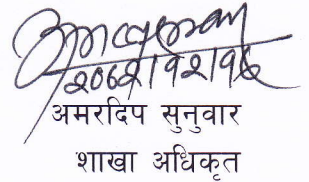 २०७९।१२।१६
अमरदिप सुनुवार
शाखा अधिकृत